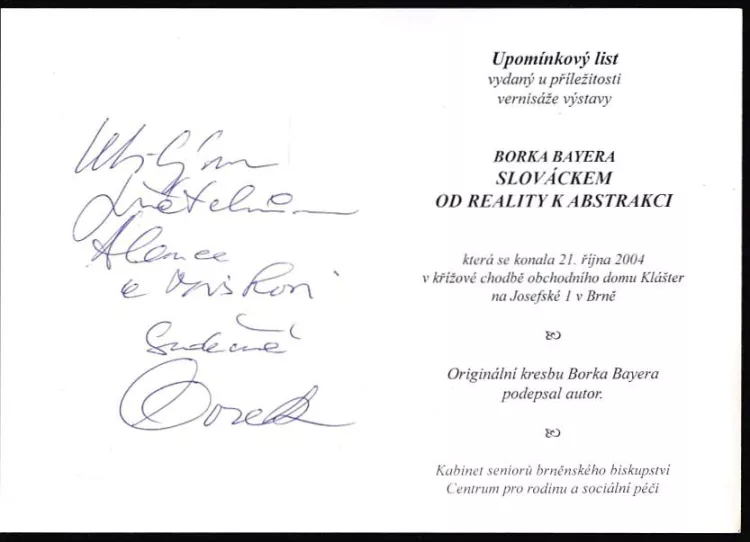 Milým
přátelům
Alence
a
srdečně
Borek
Upomínkový list
vydaný u příležitosti
vernisáže výstavy
BORKA BAYERA
SLOVÁCKEM
OD REALITY K ABSTRAKCI
která se konala 21. října 2004
v křížové chodbě obchodního domu Klášter
na Josefské 1 v Brně
Originální kresbu Borka Bayera
podepsal autor.
Kabinet seniorů brněnského biskupství
Centrum pro rodinu a sociální péči